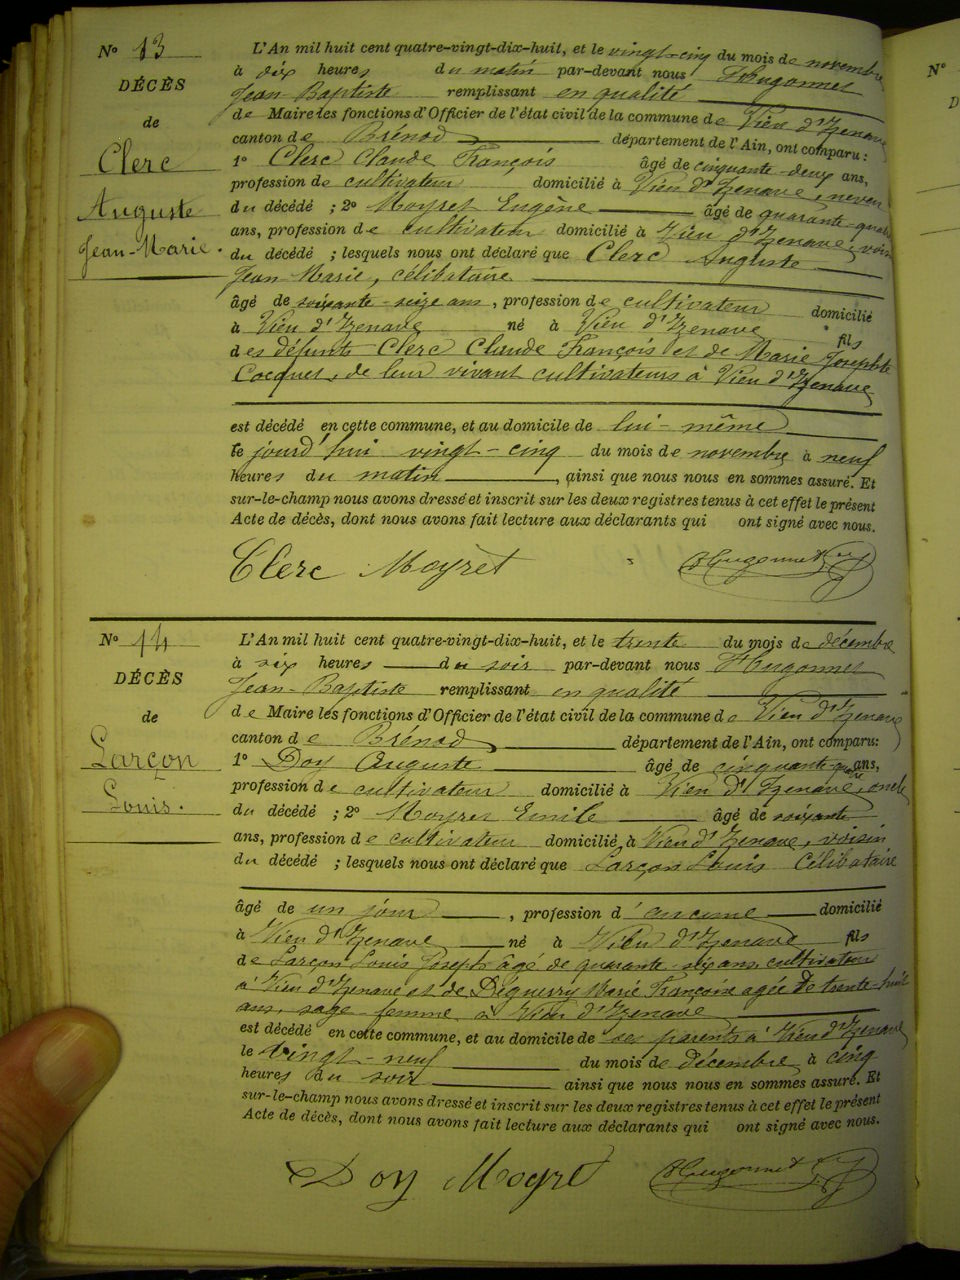 N° 13
DÉCÈS
de
Clerc
Auguste
Jean-Marie.
L'An mil huit cent quatre-vingt-dix-huit, et le vingt-cinq du mois de novembre
à dix heures du matin par-devant nous Hugonnet
Jean-Baptiste remplissant en qualité
de Maire les fonctions d'Officier de l'état civil de la commune de Vieu d'Izenave
canton de Brénod département de l'Ain, ont comparu :
1° Clerc Claude François âgé de cinquante-deux ans,
profession de cultivateur domicilié à Vieu d'Izenave, neveu
du décédé ; 2° Moyret Eugène âgé de quarante-quatre
ans, profession de cultivateur domicilié à Vieu d'Izenave, voisin
du décédé ; lesquels nous ont déclaré que Clerc Auguste
Jean Marie, célibataire
âgé de soixante-seize ans, profession de cultivateur domicilié
à Vieu d'Izenave né à Vieu d'Izenave fils
des défunts Clerc Claude François et de Marie Josephte
Cocquet, de leur vivant cultivateurs à Vieu d'Izenave
est décédé en cette commune, et au domicile de lui-même
le jourd'hui vingt-cinq du mois de novembre à neuf
heures du matin, ainsi que nous nous en sommes assuré. Et
sur-le-champ nous avons dressé et inscrit sur les deux registres tenus à cet effet le présent
Acte de décès, dont nous avons fait lecture aux déclarants qui ont signé avec nous.
Clerc Moyret Hugonnet
N° 14
DÉCÈS
de
Larçon
Louis.
L'An mil huit cent quatre-vingt-dix-huit, et le trente du mois de décembre
à six heures du soir par-devant nous Hugonnet
Jean-Baptiste remplissant en qualité
de Maire les fonctions d'Officier de l'état civil de la commune de Vieu d'Izenave
canton de Brénod département de l'Ain, ont comparu :
1° Doy Auguste âgé de cinquante-quatre ans,
profession de cultivateur domicilié à Vieu d'Izenave, oncle
du décédé ; 2° Moyret Emile âgé de soixante
ans, profession de cultivateur domicilié à Vieu d'Izenave, voisin
du décédé ; lesquels nous ont déclaré que Larçon Louis Célibataire
âgé de un jour, profession d'aucune domicilié
à Vieu d'Izenave né à Vieu d'Izenave fils
de Larçon Louis Joseph âgé de quarante-six ans, cultivateur
à Vieu d'Izenave et de Déguerry Marie Françoise agée de trente-huit
ans, sage-femme, à Vieu d'Izenave
est décédé en cette commune, et au domicile de ses parents à Vieu d'Izenave
le vingt-neuf du mois de décembre à cinq
heures du soir ainsi que nous nous en sommes assuré. Et
sur-le-champ nous avons dressé et inscrit sur les deux registres tenus à cet effet le présent
Acte de décès, dont nous avons fait lecture aux déclarants qui ont signé avec nous.
Doy Moyret Hugonnet
N°